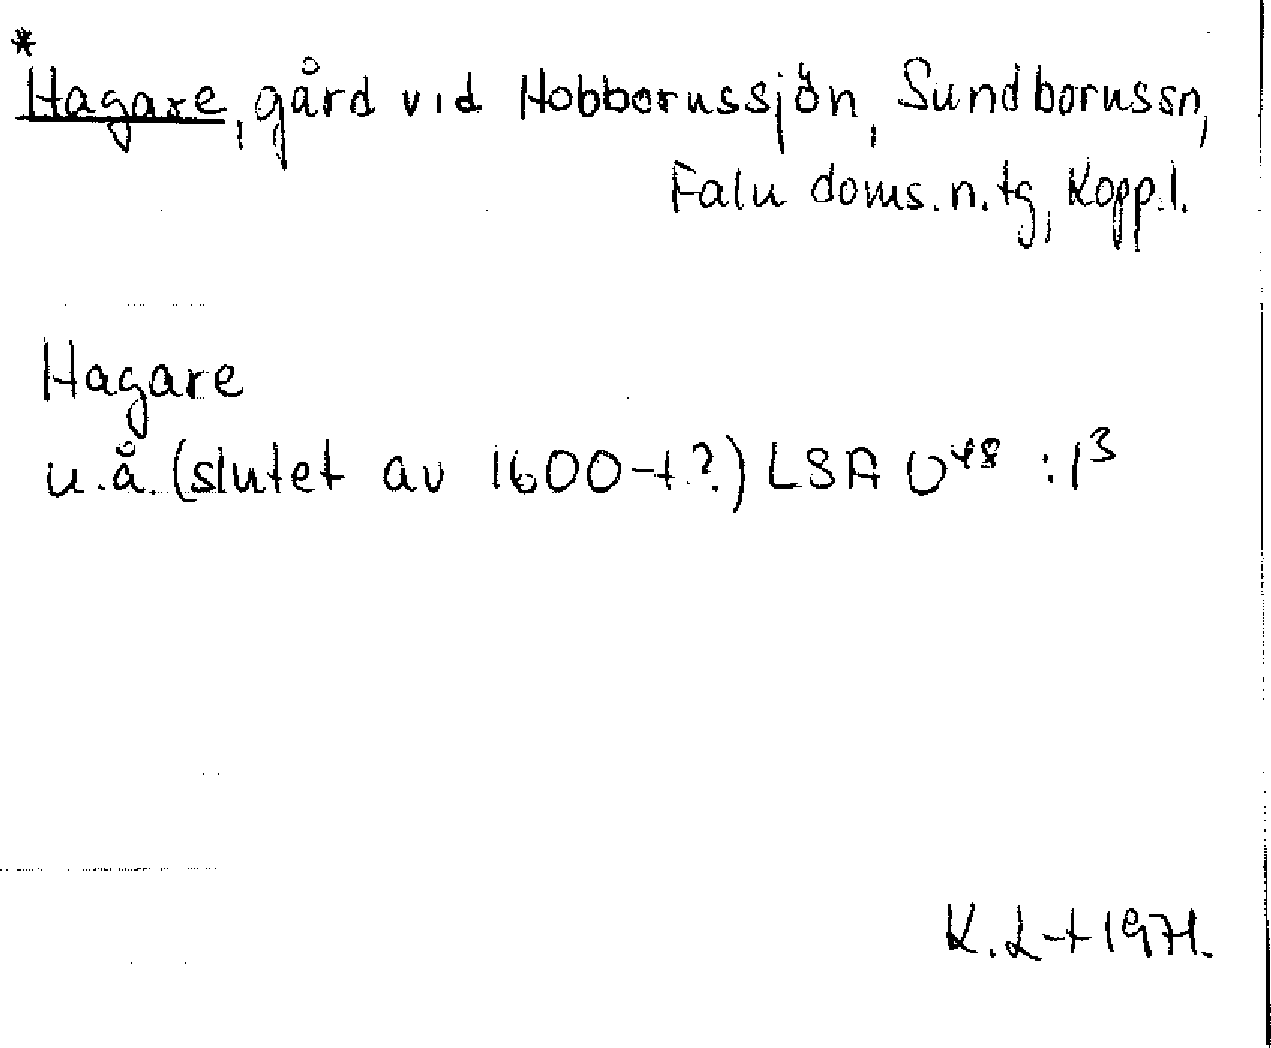 *
Hagare, gård vid Hobborussjön, Sundborussn,
Falu doms.n.tg, Kopp.l.
Hagare
u.å. (slutet av 1600-t.?) LSA U⁴⁸ :1³
K.L-t 1971.